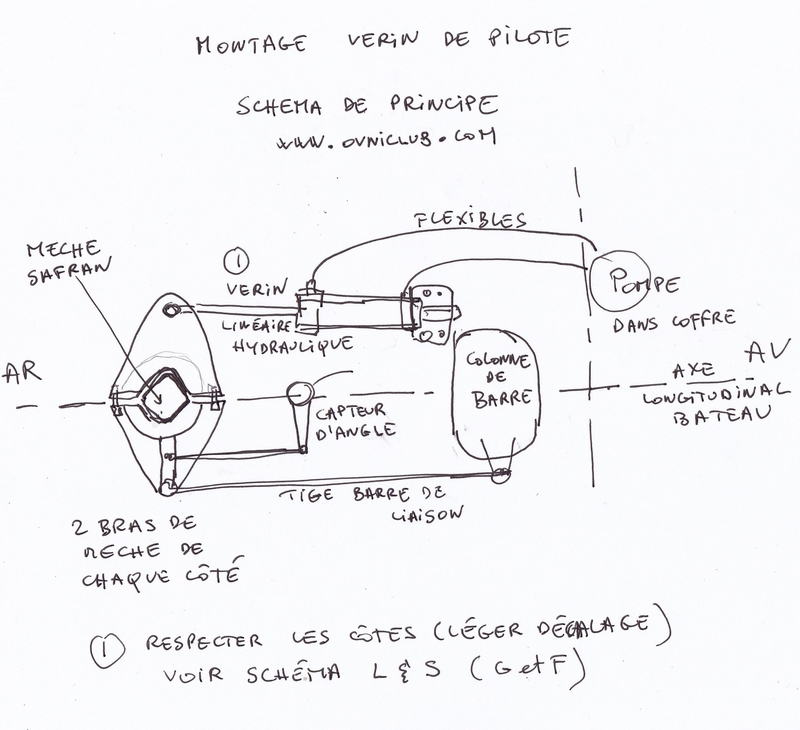 MONTAGE VERIN DE PILOTE
SCHEMA DE PRINCIPE
www.OVNICLUB.COM
FLEXIBLES
MECHE
SAFRAN
1
VERIN
LINEAIRE
HYDRAULIQUE
POMPE
DANS COFFRE
AR
CAPTEUR
D'ANGLE
COLONNE
DE
BARRE
AV
AXE
LONGITUDINAL
BATEAU
TIGE BARRE DE
LIAISON
2 BRAS DE
MECHE DE
CHAQUE CÔTÉ
1 RESPECTER LES CÔTES (LÉGER DÉCALAGE)
VOIR SCHÉMA L & S (G et F)